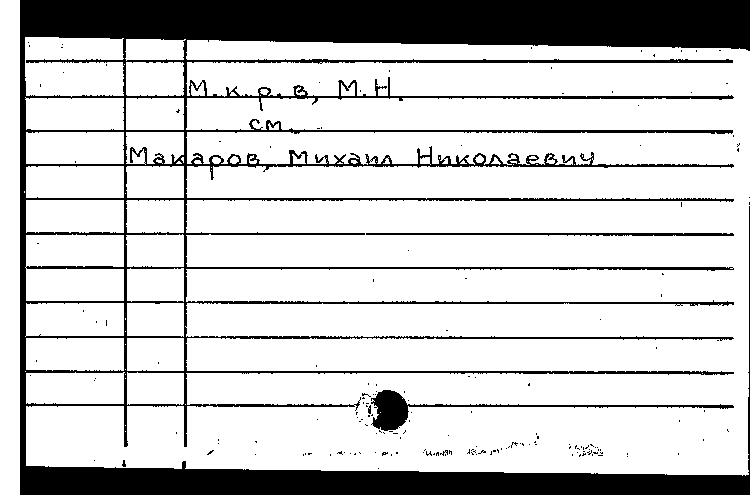 М.к.р.в, М.Н.
см.
Макаров, Михаил Николаевич